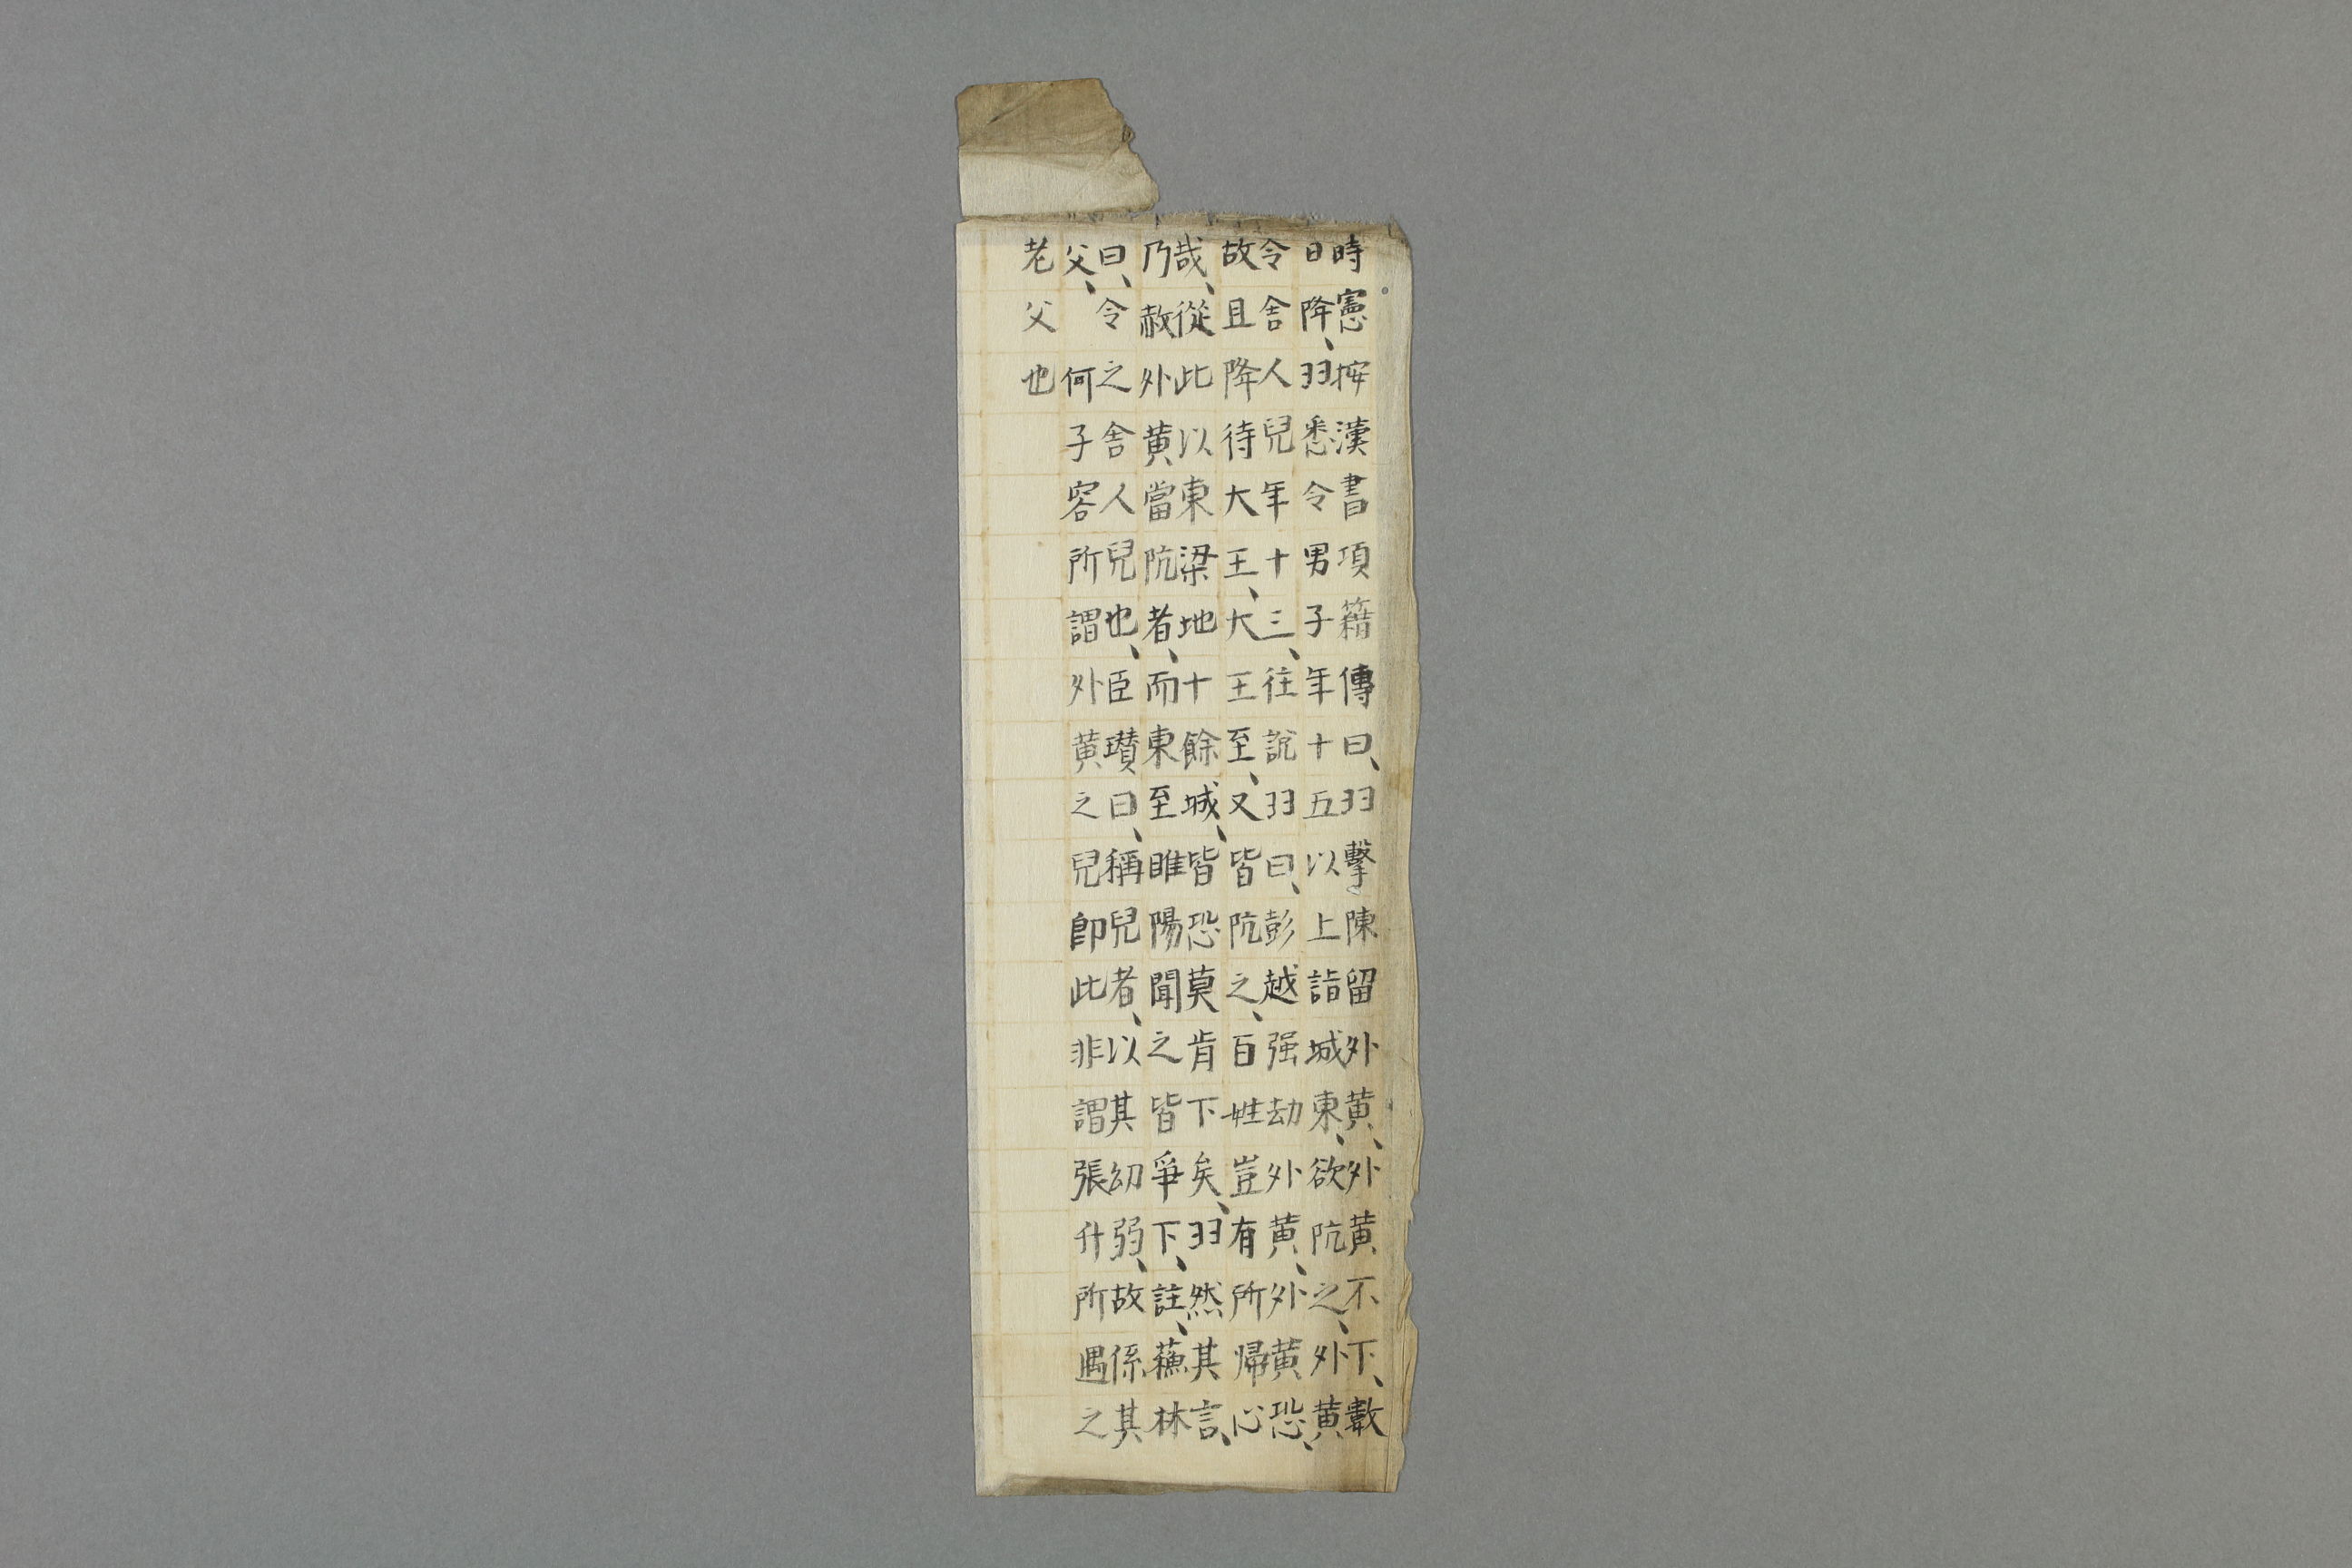 時憲按漢書項籍傳曰、羽擊陳留外黄、外黄不下、數
日降、羽悉令男子年十五以上詣城東、欲阬之、外黄
令舍人兒年十三、往說羽曰、彭越强劫外黄、外黄恐、
故且降待大王、大王至、又皆阬之、百姓豈有所歸心
哉、從此以東梁地十餘城、皆恐莫肯下矣、羽然其言、
乃赦外黄當阬者、而東至睢陽聞之皆爭下、註、蘓林
曰、令之舍人兒也、臣瓚曰、稱兒者、以其幼弱、故係其
父、何子容所謂外黄之兒卽此非謂張升所遇之
老父也